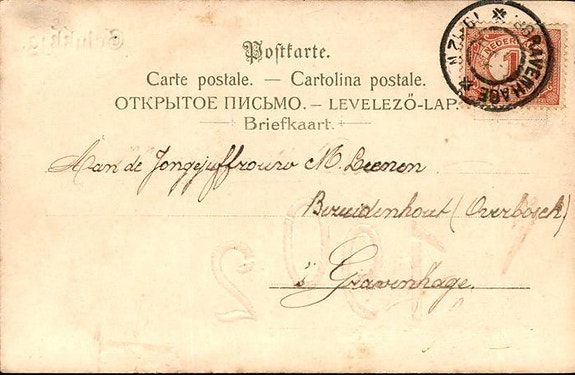 Postkarte.
Carte postale. – Cartolina postale.
ОТКРЫТОЕ ПИСЬМО. – LEVELEZŐ-LAP.
Briefkaart.
'SGRAVENHAGE
NEDERL
1
Aan de Jongejuffrouw M. Leenen
Bezuidenhout (Overbosch)
's Gravenhage.